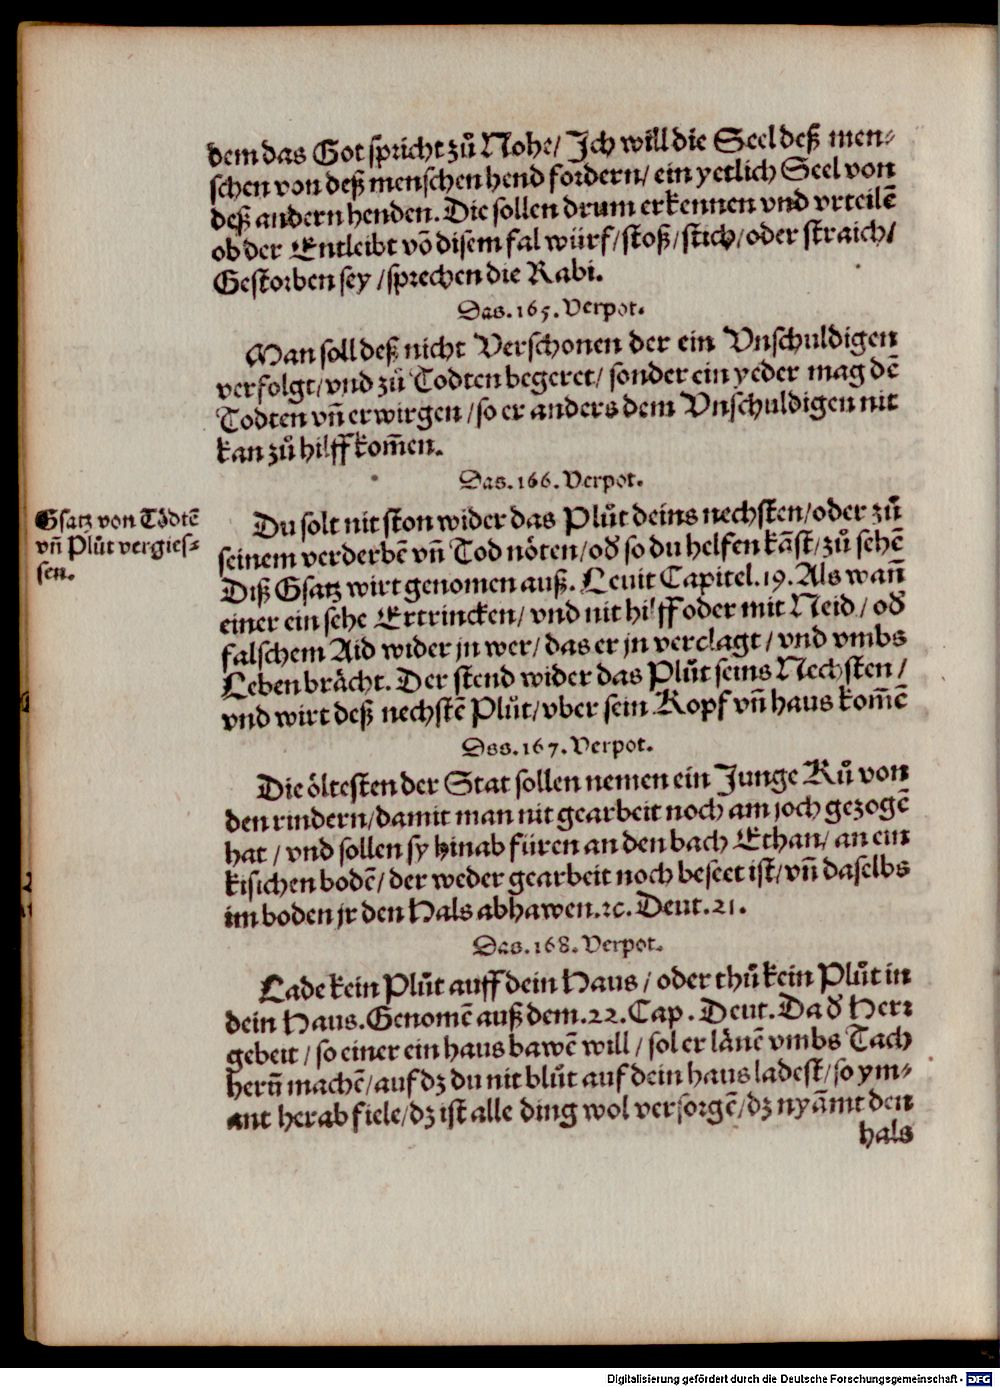 dem das Got spricht zuͦ Nohe/ Ich will die Seel deß men-
schen von deß menschen hend fordern/ ein yetlich Seel von
deß andern henden. Die sollen drum erkennen vnd vrteilē
ob der Entleibt võ disem fal würf/ stoß/ stich/ oder straich/
Gestorben sey / sprechen die Rabi.
Das. 165. Verpot.
Man soll deß nicht Verschonen der ein Vnschuldigen
verfolgt/ vnd zuͦ Todten begeret/ sonder ein yeder mag dē
Todten vñ erwirgen / so er anders dem Vnschuldigen nit
kan zuͦ hilff kom̄en.
Das. 166. Verpot.
Gsatz von Tödtē
vñ Pluͦt vergies-
sen.
Du solt nit ston wider das Pluͦt deins nechsten/ oder zuͦ
seinem verderbē vñ Tod nöten/ oð so du helfen kāst/ zuͦ sehē
Diß Gsatz wirt genomen auß. Leuit Capitel. 19. Als wañ
einer ein sehe Ertrincken/ vnd nit hilff oder mit Neid / oð
falschem Aid wider jn wer/ das er jn verclagt / vnd vmbs
Leben brächt. Der stend wider das Pluͦt seins Nechsten /
vnd wirt deß nechstē Pluͦt/ vber sein Kopf vñ haus kom̄ē
Dss. 167. Verpot.
Die öltesten der Stat sollen nemen ein Junge Kuͦ von
den rindern/ damit man nit gearbeit noch am joch gezogē
hat / vnd sollen sy hinab füren an den bach Ethan/ an ein
kisichen bodē/ der weder gearbeit noch beseet ist/ vñ daselbs
im boden jr den Hals abhawen. ꝛc. Deut. 21.
Das. 168. Verpot.
Lade kein Pluͦt auff dein Haus / oder thuͦ kein Pluͦt in
dein Haus. Genomē auß dem. 22. Cap. Deut. Da ð Herr
gebeit / so einer ein haus bawē will / sol er länē vmbs Tach
herū machē/ auf dz du nit bluͦt auf dein haus ladest/ so ym-
ant herab fiele/ dz ist alle ding wol versorgē/ dz nyāmt den
hals
Digitalisierung gefördert durch die Deutsche Forschungsgemeinschaft - DFG